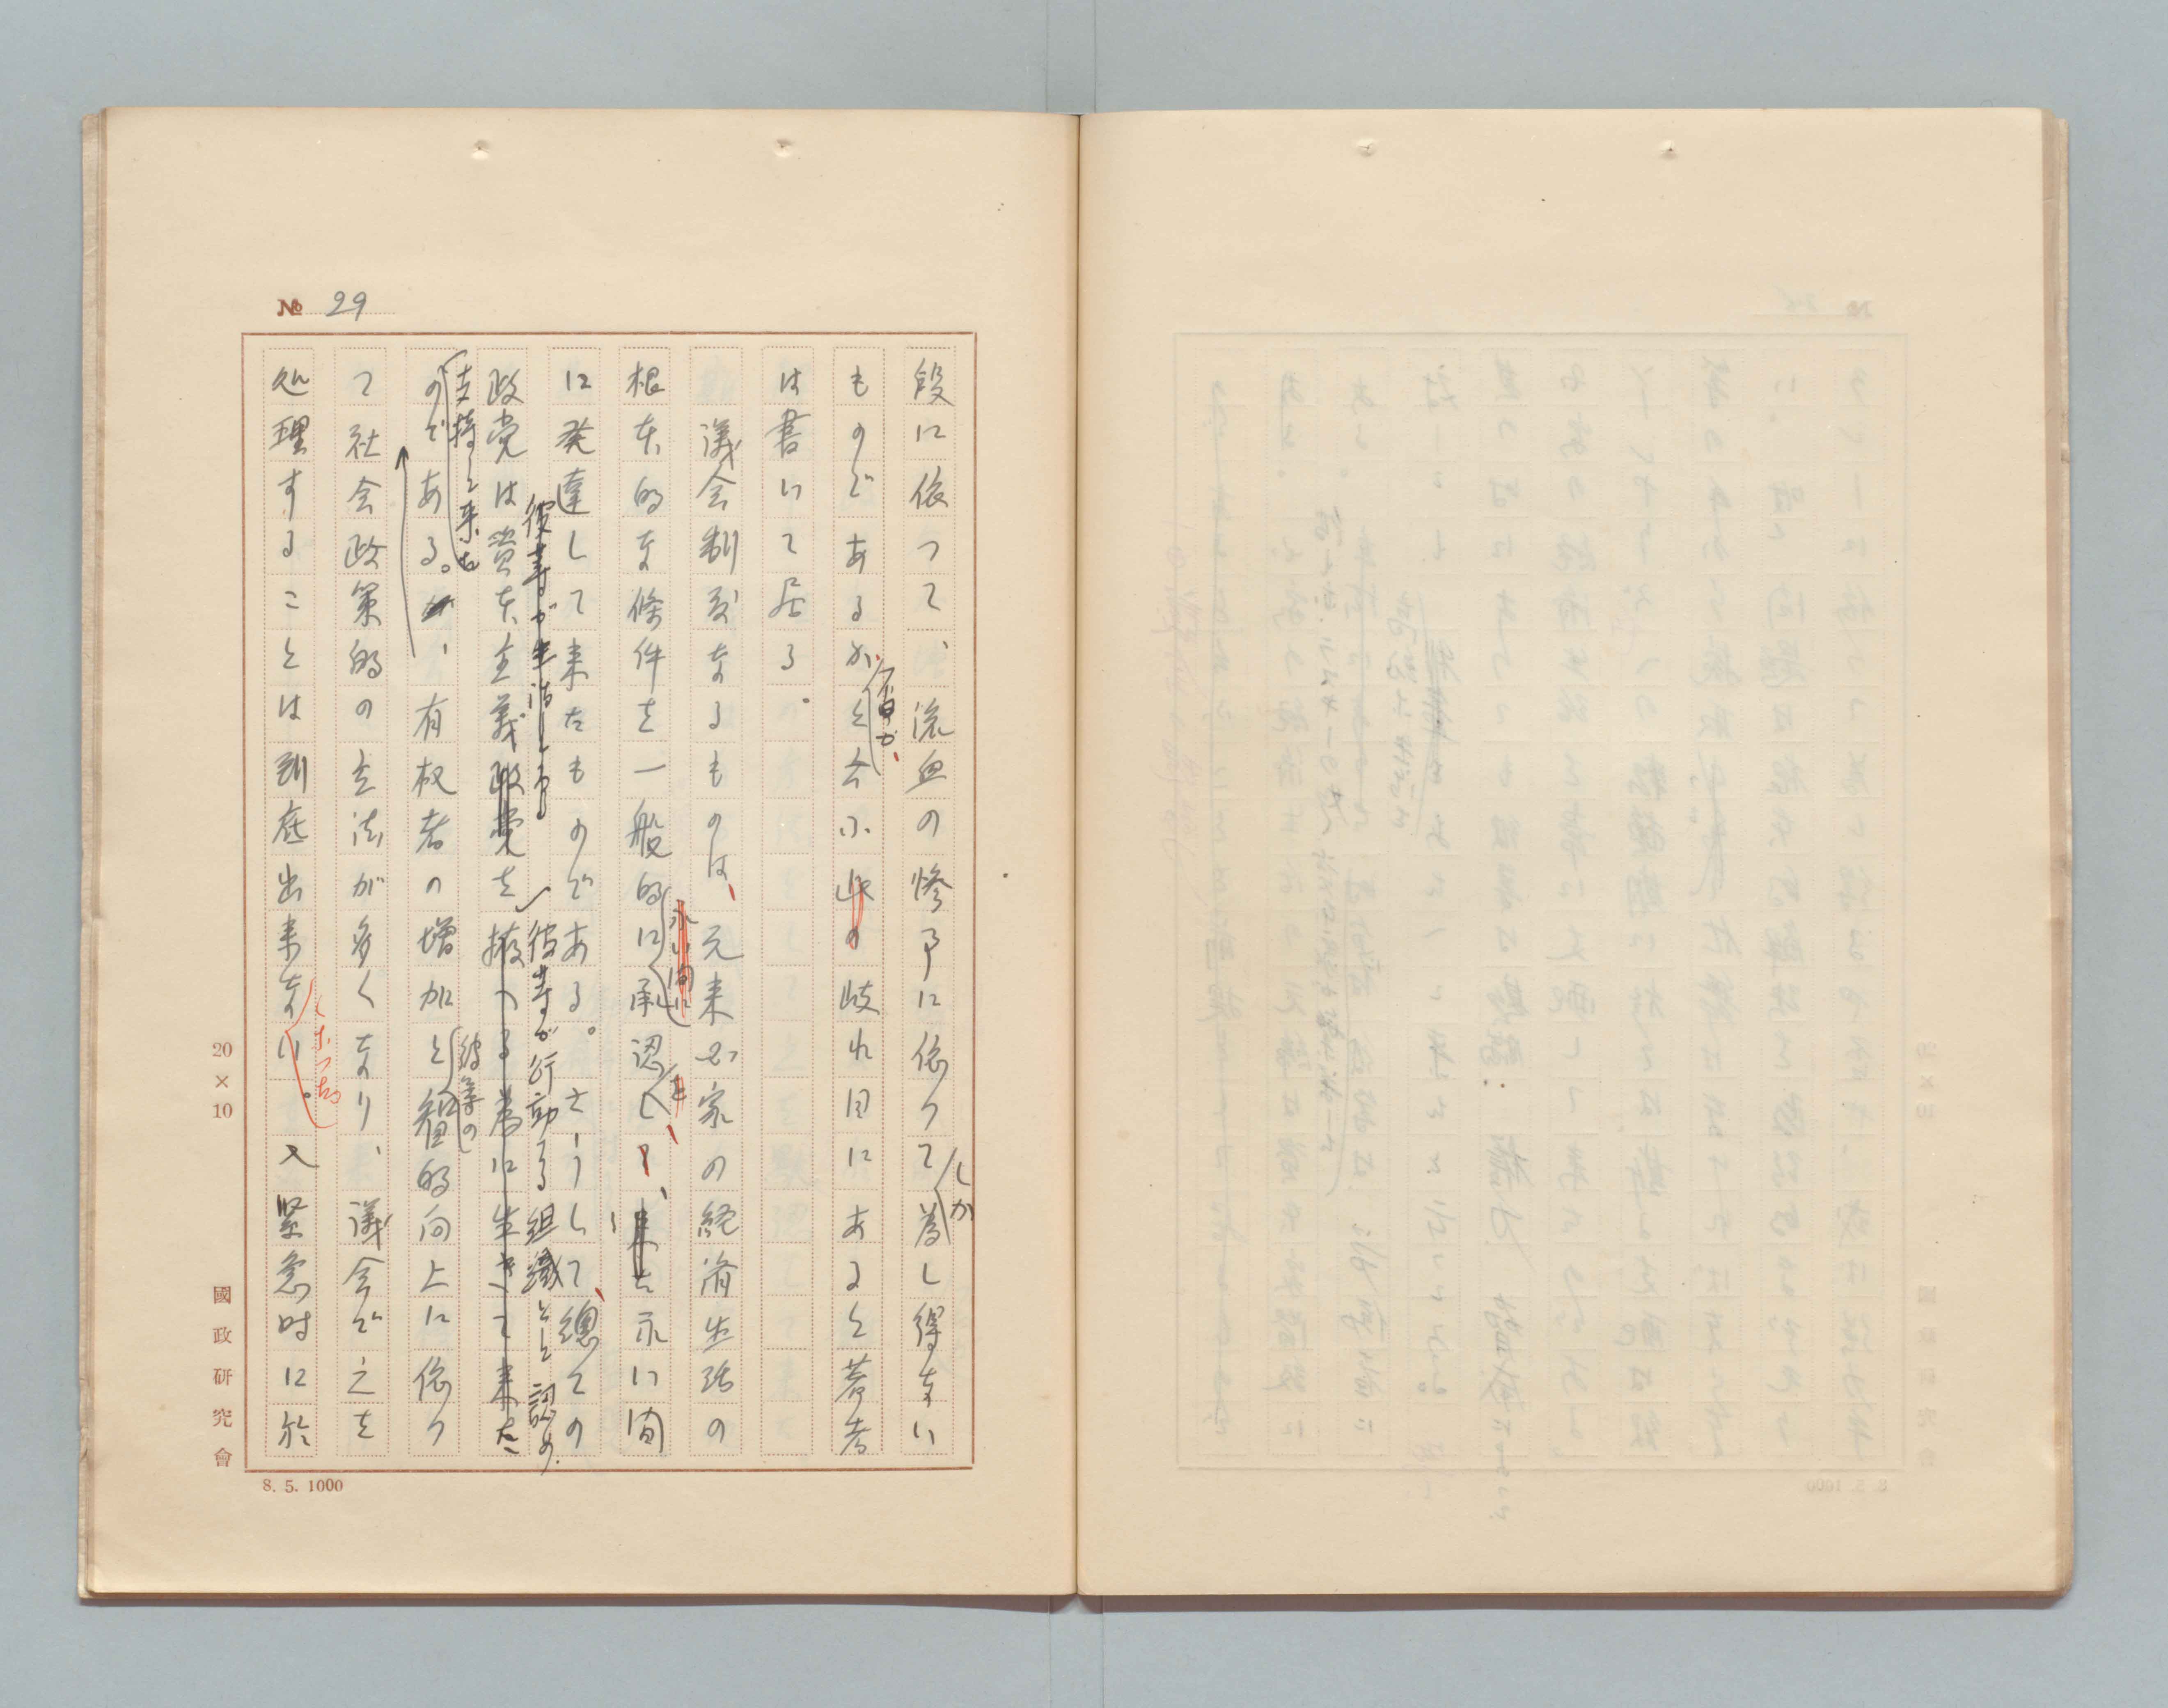 № 29
段に依つて、流血の惨事に依つてしか為し得ない
ものであるか、と今小此の岐れ目にあると著者
吾が、
は書いて居る。
議会制度なるものは、元来国家の経済生活の
根本的な條件を一般的に承認し、来た永い間
永い間に
を
に発達して来たものである。さうして、總ての
彼等が生活しる
彼等が行動する組織として認め、
政党は資本主義政党を擁つる為に生きて来た
支持して来た
のである。が、有权者の増加と智的向上に依つ
彼等の
て社会政策的の立法が多くなり、議会で之を
処理することは到底出来ない。又緊急時に於
くなつた
20×10
國政研究會
8. 5. 1000